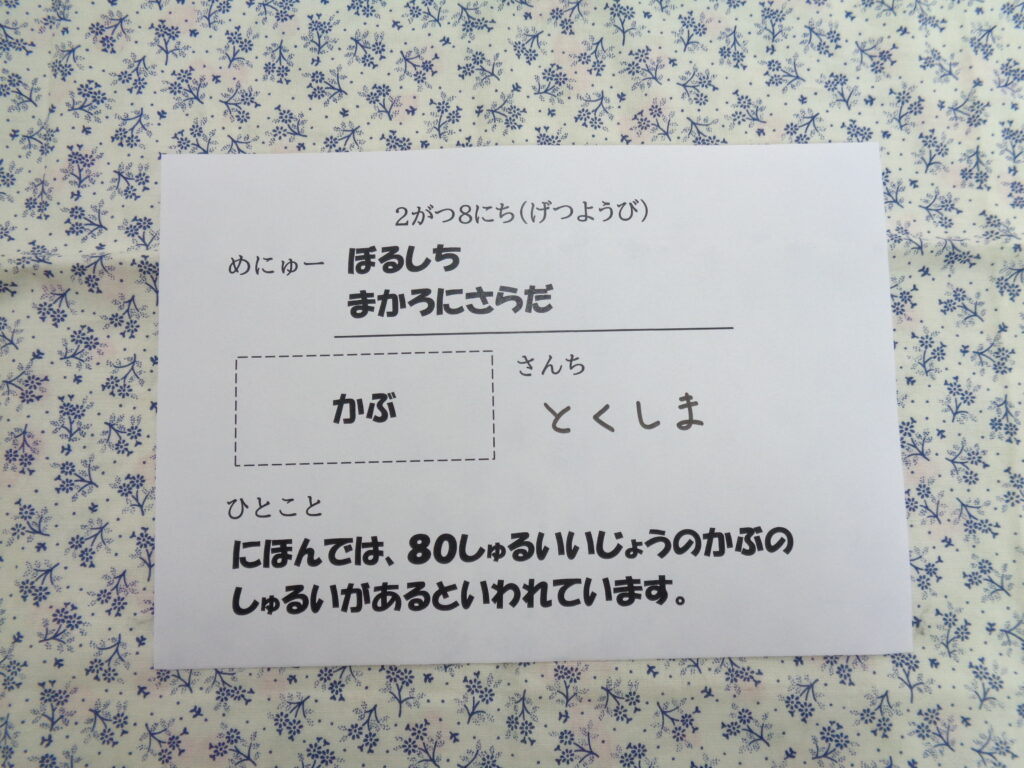 2がつ8にち(げつようび)
めにゅー ぼるしち
まかろにさらだ
さんち
かぶ とくしま
ひとこと
にほんでは、80しゅるいいじょうのかぶの
しゅるいがあるといわれています。